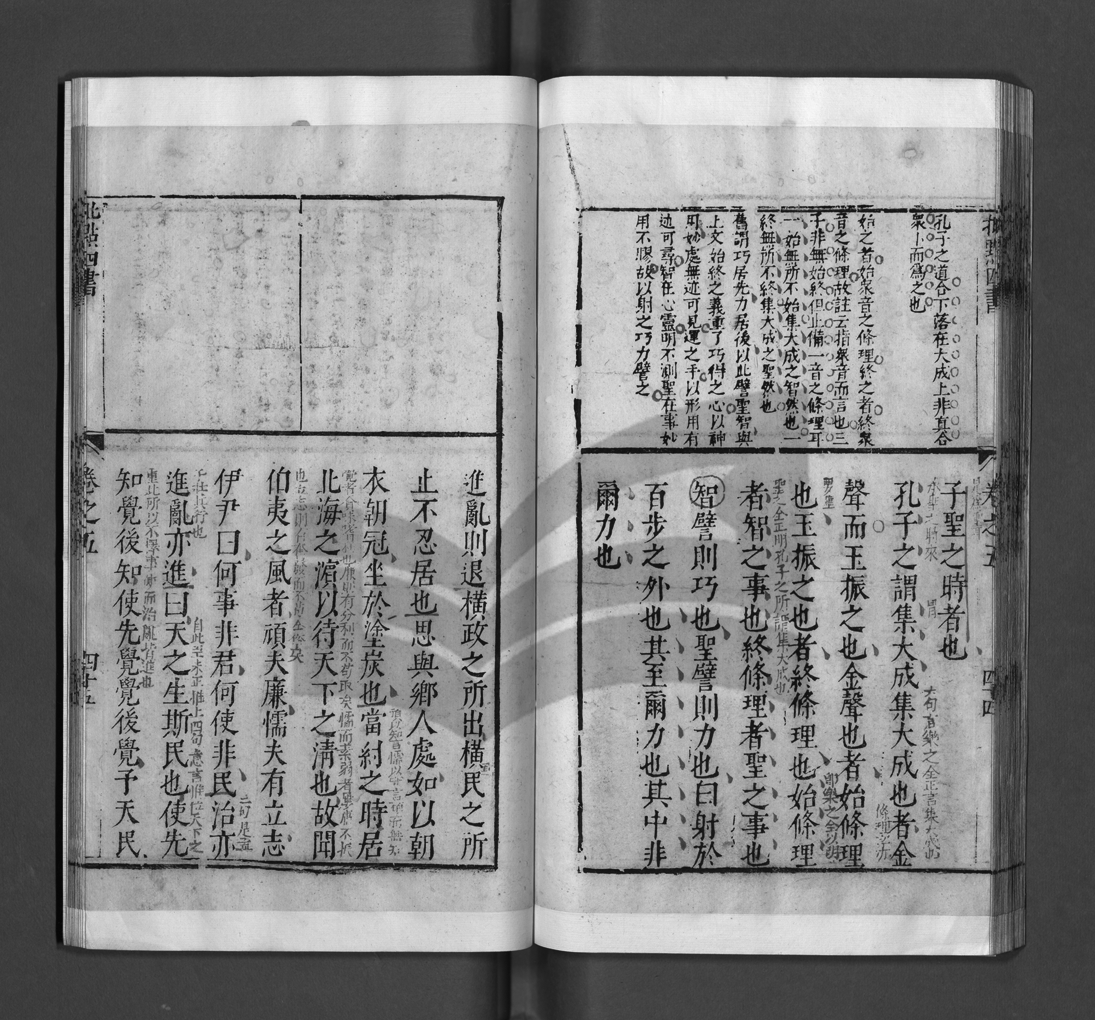 孔子之道合下落在大成上非真合
衆小而為之也
始之者始衆音之條理終之者終衆
音之條理故註云指衆音而言也三
子非無始終但止備一音之條理耳
一始無所不始集大成之智然也一
終無所不終集大成之聖然也
舊謂巧居先力居後以此譬聖智與
上文始終之義重了巧得之心以神
用妙處無迹可見運之手以形用有
迹可尋智在心靈明不測聖在事妙
用不膠故以射之巧力譬之
子聖之時者也
孔子之謂集大成集大成也者金
聲而玉振之也金聲也者始條理
也玉振之也者終條理也始條理
者智之事也終條理者聖之事也
智譬則巧也聖譬則力也曰射於
百步之外也其至爾力也其中非
爾力也
卷之五
四十四
進亂則退橫政之所出橫民之所
止不忍居也思與鄉人處如以朝
衣朝冠坐於塗炭也當紂之時居
北海之濱以待天下之淸也故聞
伯夷之風者頑夫廉懦夫有立志
伊尹曰何事非君何使非民治亦
進亂亦進曰天之生斯民也使先
知覺後知使先覺覺後覺予天民
卷之五
四十五